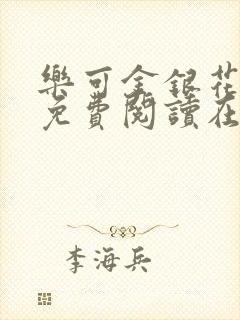 樂可金銀花
免費閱讀在
李海兵